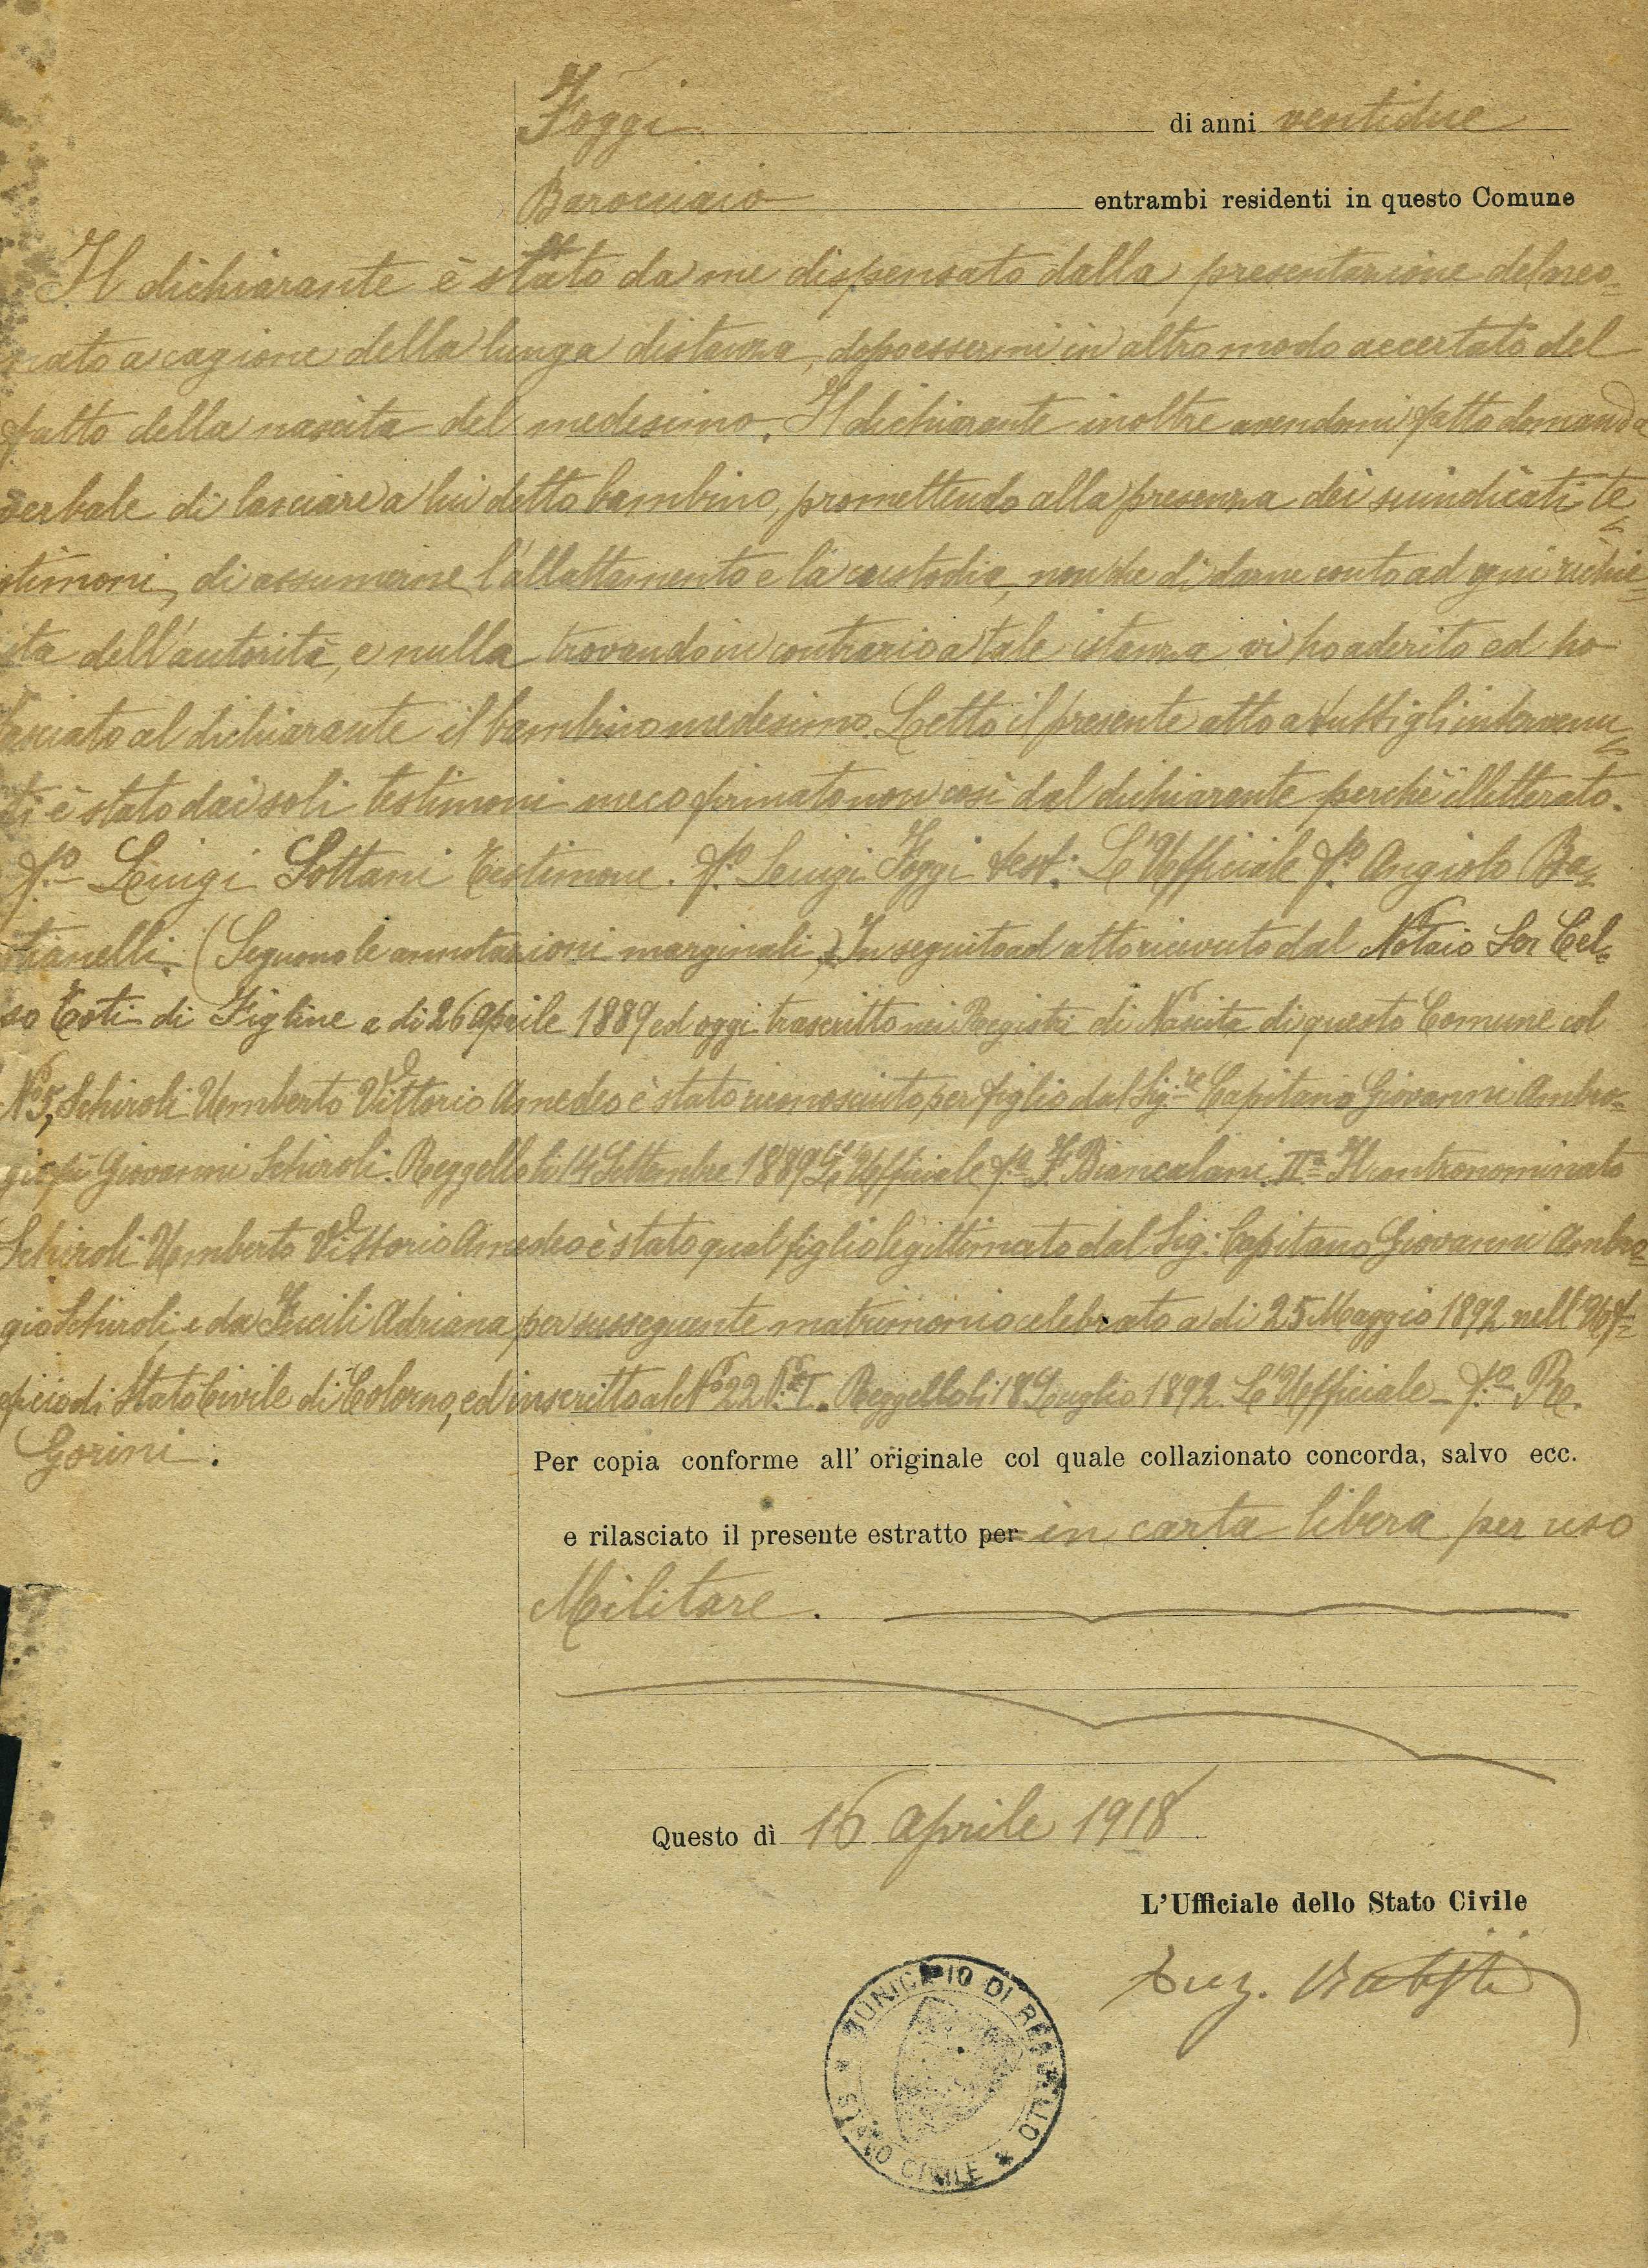 Foggi di anni ventidue
Barocciaio entrambi residenti in questo Comune
Il dichiarante è stato da me dispensato dalla presentazione del neo=
nato a cagione della lunga distanza, dopo essermi in altro modo accertato del
fatto della nascita del medesimo. Il dichiarante inoltre avendomi fatto domanda
verbale di lasciare a lui detto bambino, promettendo alla presenza dei suindicati te=
stimoni, di assumerne l'allattamento e la custodia, nonche di darne conto ad ogni richie=
sta dell'autorità, e nulla trovando in contrario a tale istanza vi ho aderito ed ho
lasciato al dichiarante il bambino medesimo. Letto il presente atto a tutti gli intervenu=
ti è stato dai soli testimoni meco firmato non così dal dichiarante perchè illetterato.
f.º Luigi Sottani Testimone. f.º Luigi Foggi test: L'Ufficiale f.º Angiolo Ba=
tianelli. (Seguono le annotazioni marginali) In seguito ad atto ricevuto dal Notaio Ser Cel=
so Toti di Figline a di 26 aprile 1889 ed oggi trascritto nei Registri di Nascita di questo Comune col
Nº 5, Schiroli Umberto Vittorio Amedeo è stato riconosciuto per figlio dal Sig.re Capitano Giovanni Ambro=
gio fu Giovanni Schiroli. Reggello li 14 Settembre 1889 L'Ufficiale f.º F. Biancalani. IIª Il contronominato
Schiroli Umberto Vittorio Amedeo è stato qual figlio legittimato dal Sig: Capitano Giovanni Ambro=
gio Schiroli, e da Fucili Adriana per susseguente matrimonio celebrato a di 25 Maggio 1892 nell'Uf=
ficio di Stato Civile di Colorno, ed inscritto al Nº 22 P.e I. Reggello li 18 Luglio 1892. L'Ufficiale - f.º
Gorini.
Per copia conforme all' originale col quale collazionato concorda, salvo ecc.
e rilasciato il presente estratto per in carta libera per uso
Militare.
Questo dì 16 Aprile 1918
L'Ufficiale dello Stato Civile
MUNICIPIO DI REGGELLO
* STATO CIVILE *